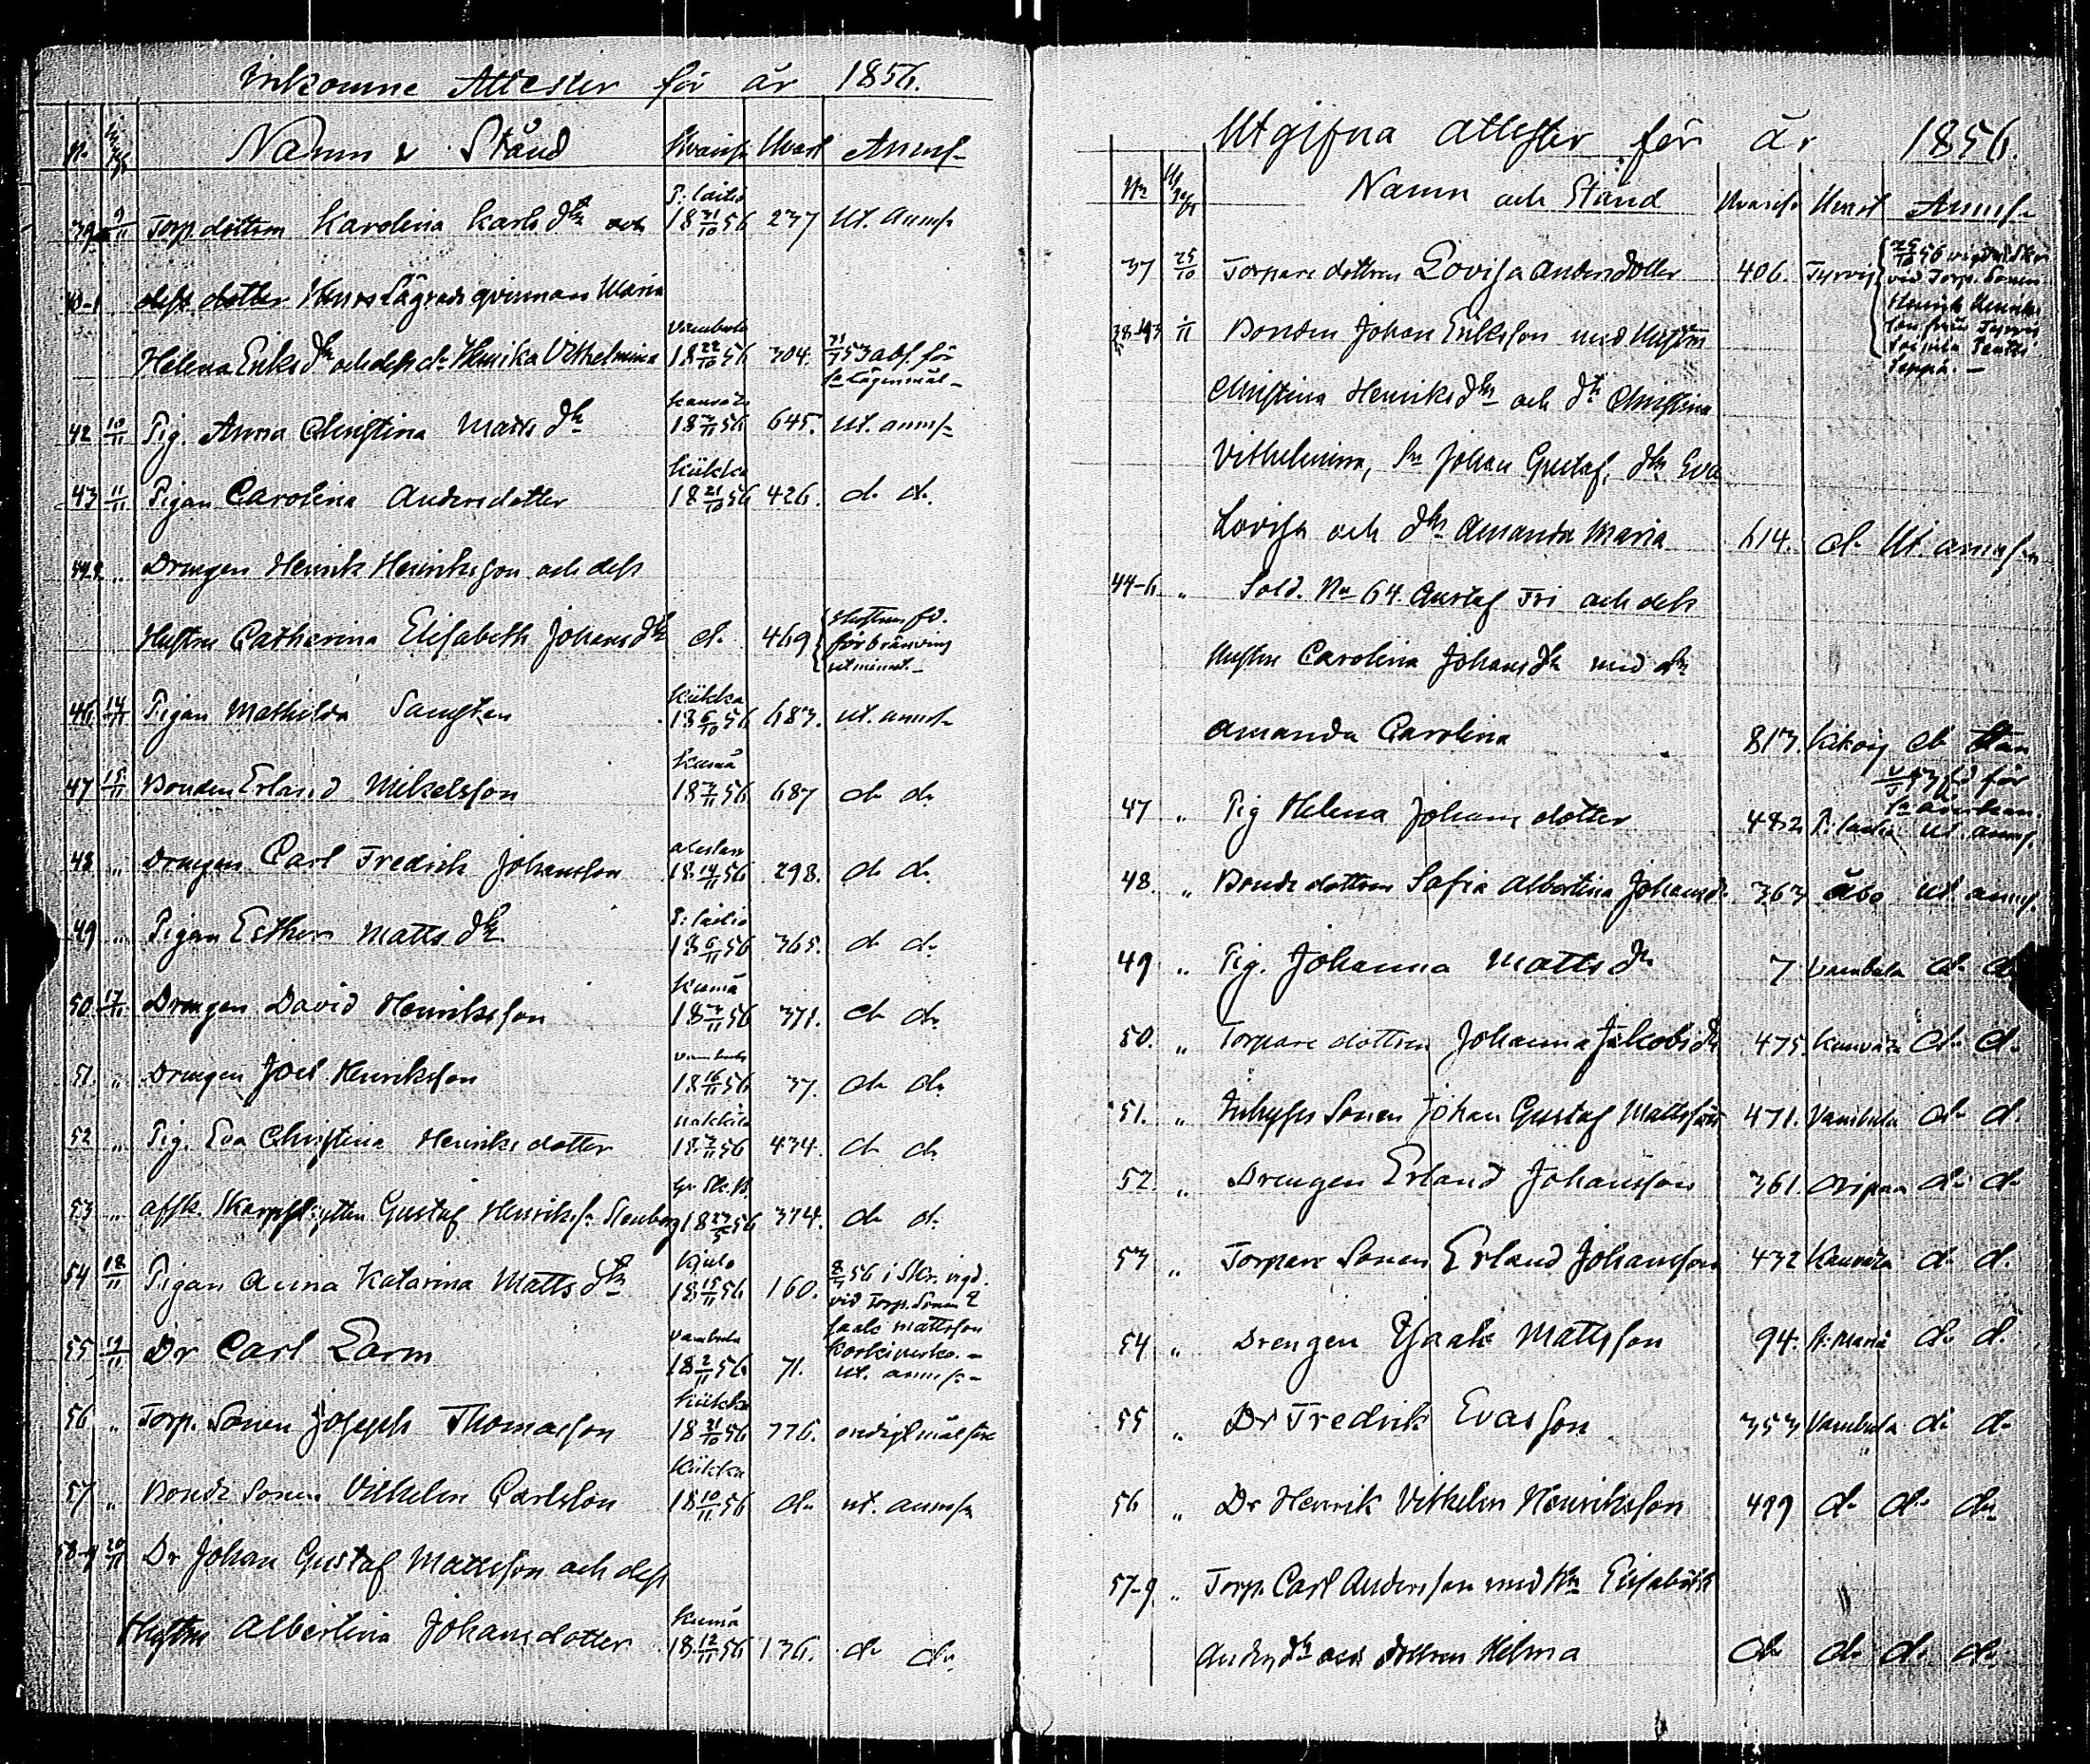 Inkomne Attester för år 1856.
No Namn & Stånd Hvarifr. Hvart Anmf.
39 9/11 Torp. dottren Karolina Karls dtr och P: lailio 18 31/10 56 237 Ut. Anmf.
40-1 Lägrads qvinnan Maria
Helena Eriks dr och dess dr Henrika Vilhelmina Vambula 18 22/10 56 304. abs. för
Lägersmål
42 10/11 Pig. Anna Christina Matts dr 18 /11 56 645. ut. anmf.
43 11/11 Pigan Carolina Andersdotter Kiikka 18 21/10 56 426. do do
44-5 „ Drengen Henrik Henriksson och dess
Hustru Catharina Elisabeth Johans dr do 469 förbränning
utminut.
46 14/11 Pigan Mathilda Kiikka 18 6/10 56 683. ut. anmf.
47 15/11 Bonden Erland Mikelsson Kumå 18 /11 56 687 do do
48 „ Drengen Carl Fredrik Johansson 18 14/11 56 298. do do
49 „ Pigan Esther Matts dr P: lailio 18 6/11 56 365. do do
50 17/11 Drengen David Henriksson Kumå 18 /11 56 371. do do
51. „ Drengen Joel Henriksson Vambula 18 16/11 56 37. do do
52 „ Pig. Eva Christina Henriks dotter Nakkila 18 /11 56 434. do do
53 „ afsk. Skarpskytten Gustaf Henrikss. Stenberg 18 23/5 56 374. do do
54 18/11 Pigan Anna Katarina Matts dr Kjulo 18 15/11 56 160. 56 i Skr. vigd.
vid Torp. Sonen
Isaak Mattsson
55 19/11 Dr Carl Larm Vambula 18 2/11 56 71. ut. anmf.
56 „ Torp. Sonen Joseph Thomasson Kiikka 18 21/10 56 776.
57 „ Bonde Sonen Vilhelm Carlsson Kiikka 18 10/11 56 do ut. anmf.
58-9 20/11 Dr Johan Gustaf Mattsson och dess
Hustru Albertina Johansdotter Kumå 18 12/11 56 136. do do
Utgifna attester för år 1856.
No Namn och Stånd Hvarifr. Hvart Anmf.
37 25/10 Torpare dottren Lovisa Andersdotter 406. Tyrvis 25/10 56 vigd
vid Torp. Sonen
Henrik Henriks
son från Tyrvis
38-43 Bonden Johan Eriksson med Hustru
Christina Henriks dr och dr Christina
Vilhelmina, Sn Johan Gustaf, dr Eva
Lovisa och dr Amanda Maria 614. do Ut. anmf.
44-6 „ Sold. No 64 Gustaf Fri och dess
Hustru Carolina Johans dr med dr
Amanda Carolina 813. do
47 „ Pig Helena Johans dotter 482 P: lailio ut. anmf.
48. „ Bonde dottren Sofia Albertina Johansd. 363 Åbo ut. anmf.
49 „ Pig. Johanna Matts dr 7 Vambula do do
50. „ Torpare dottren Johanna Jakobs dr 475. do do
51. „ Inhyses Sonen Johan Gustaf Mattsson 471. Vambula do do
52. „ Drengen Erland Johansson 361. Oripää do do
53 „ Torpare Sonen Erland Johansson 432 do do
54 „ Drengen Isaak Mattsson 94. St. Maria do do
55 „ Dr Fredrik Evasson 353 Vambula do do
56 „ Dr Henrik Vilhelm Henriksson 499 do do do
57-9. „ Torp. Carl Andersson med Hu Elisabeth
Anders dr och dottren Helma do do do do